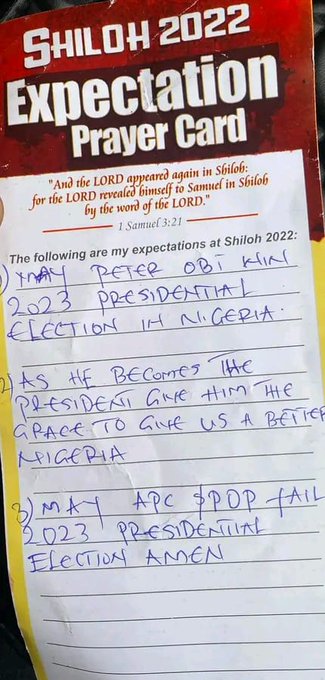 SHILOH 2022
Expectation
Prayer Card
"And the LORD appeared again in Shiloh:
for the LORD revealed himself to Samuel in Shiloh
by the word of the LORD."
1 Samuel 3:21
The following are my expectations at Shiloh 2022:
1) MAY PETER OBI WIN
2023 PRESIDENTIAL
ELECTION IN NIGERIA.
2) AS HE BECOMES THE
PRESIDENT GIVE HIM THE
GRACE TO GIVE US A BETTER
NIGERIA
3) MAY APC & PDP FAIL
2023 PRESIDENTIAL
ELECTION AMEN